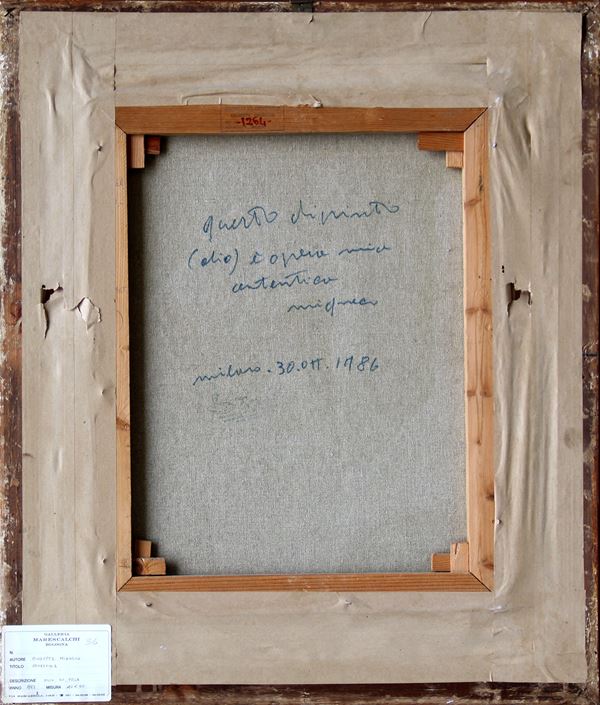 -1264-
questo dipinto
(olio) è opera mia
autentica
migneco
milano. 30. ott. 1986
GALLERIA
MARESCALCHI
BOLOGNA
36
N.
AUTORE GIUSEPPE MIGNECO
TITOLO
DESCRIZIONE OLIO SU TELA
ANNO MISURA